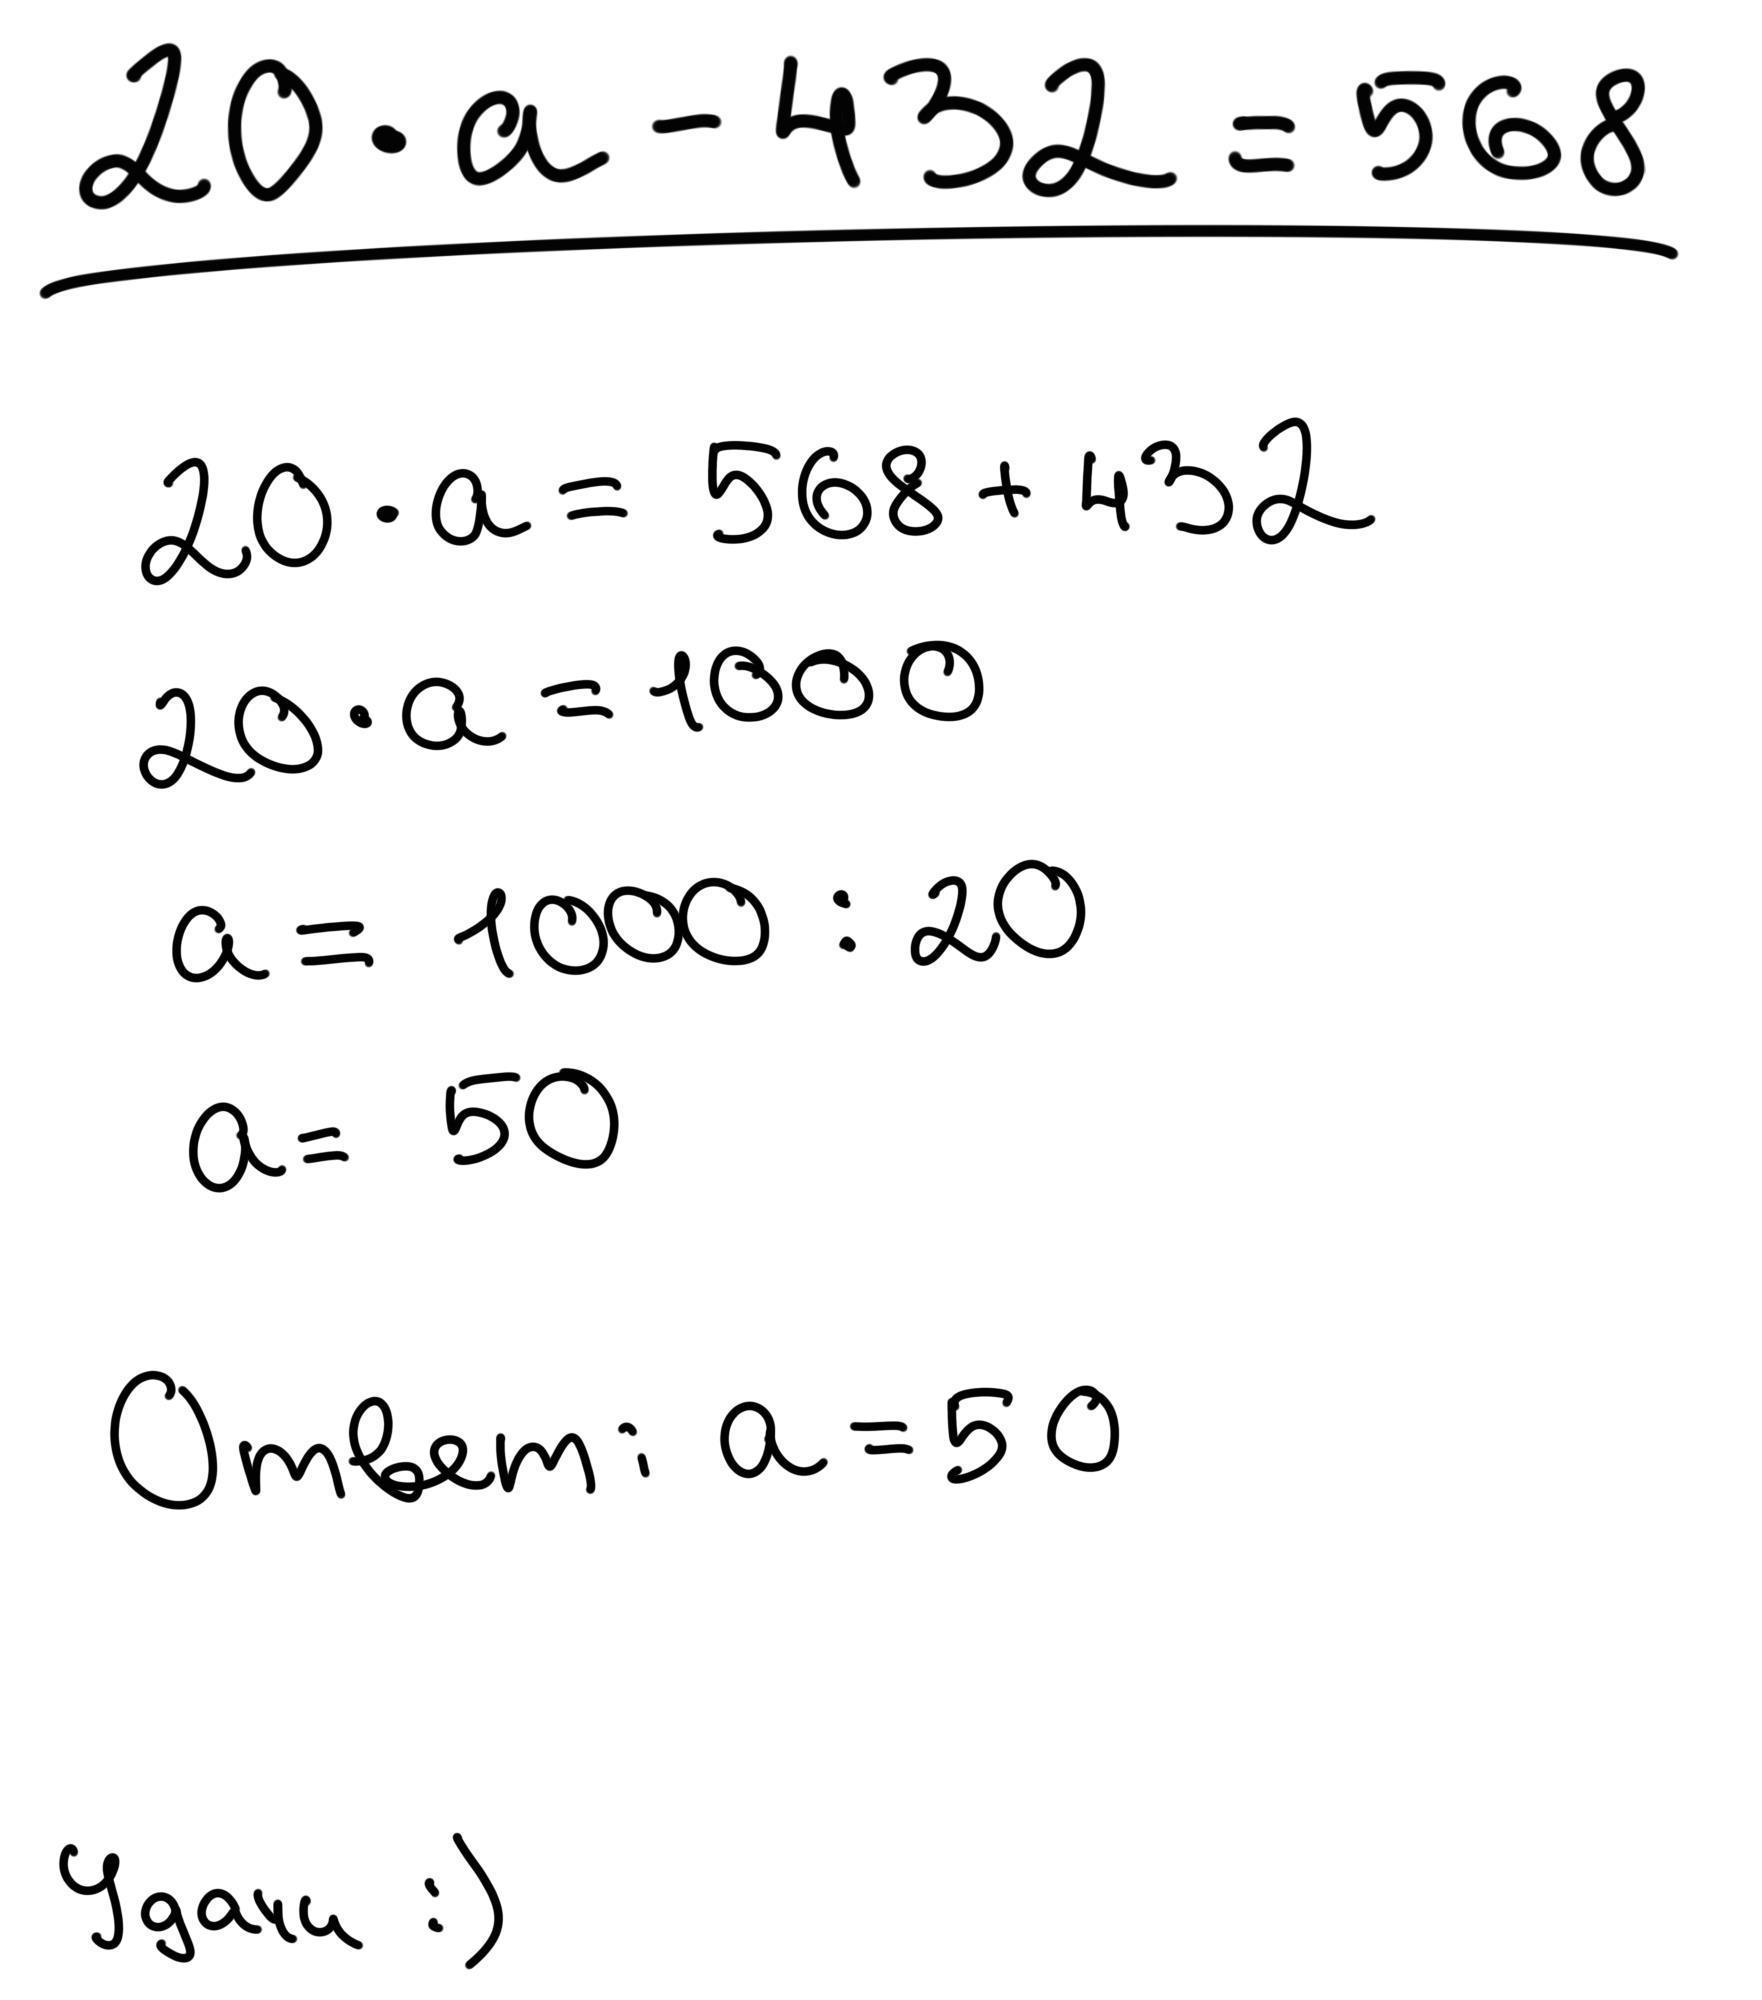 20 · a - 432 = 568
20 · a = 568 + 432
20 · a = 1000
a = 1000 : 20
a = 50
Ответ: a = 50
Удачи :)